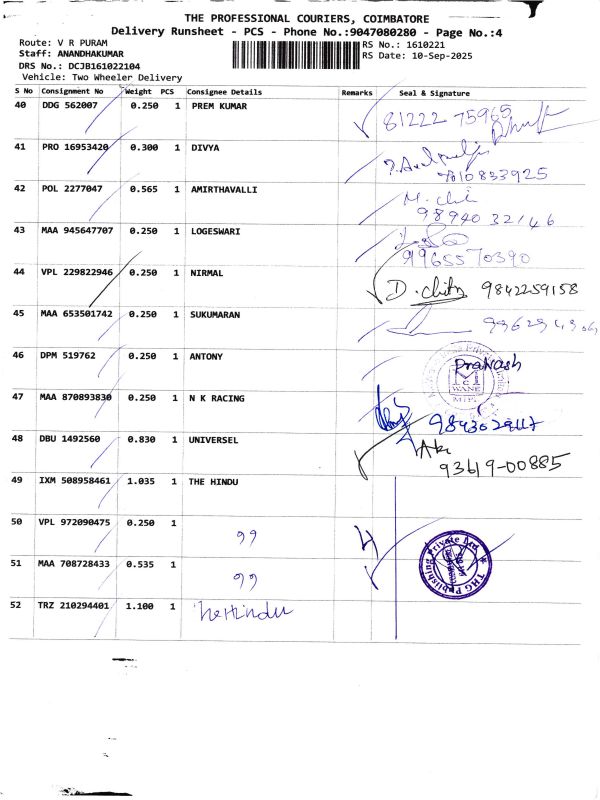 THE PROFESSIONAL COURIERS, COIMBATORE
Delivery Runsheet - PCS - Phone No.:9047080280 - Page No.:4
Route: V R PURAM
RS No.: 1610221
Staff: ANANDHAKUMAR
RS Date: 10-Sep-2025
DRS No.: DCJB161022104
Vehicle: Two Wheeler Delivery
S No Consignment No Weight PCS Consignee Details Remarks Seal & Signature
40 DDG 562007 0.250 1 PREM KUMAR
81222 75965
41 PRO 16953420 0.300 1 DIVYA
7010833925
42 POL 2277047 0.565 1 AMIRTHAVALLI
98940 32146
43 MAA 945647707 0.250 1 LOGESWARI
9965570390
44 VPL 229822946 0.250 1 NIRMAL
D. chitra 9842259158
45 MAA 653501742 0.250 1 SUKUMARAN
46 DPM 519762 0.250 1 ANTONY
Prakash
47 MAA 870893830 0.250 1 N K RACING
48 DBU 1492560 0.830 1 UNIVERSEL
93619-00885
49 IXM 508958461 1.035 1 THE HINDU
50 VPL 972090475 0.250 1 99
51 MAA 708728433 0.535 1 99
THG Publishing Private Ltd.
52 TRZ 210294401 1.100 1 The Hindu